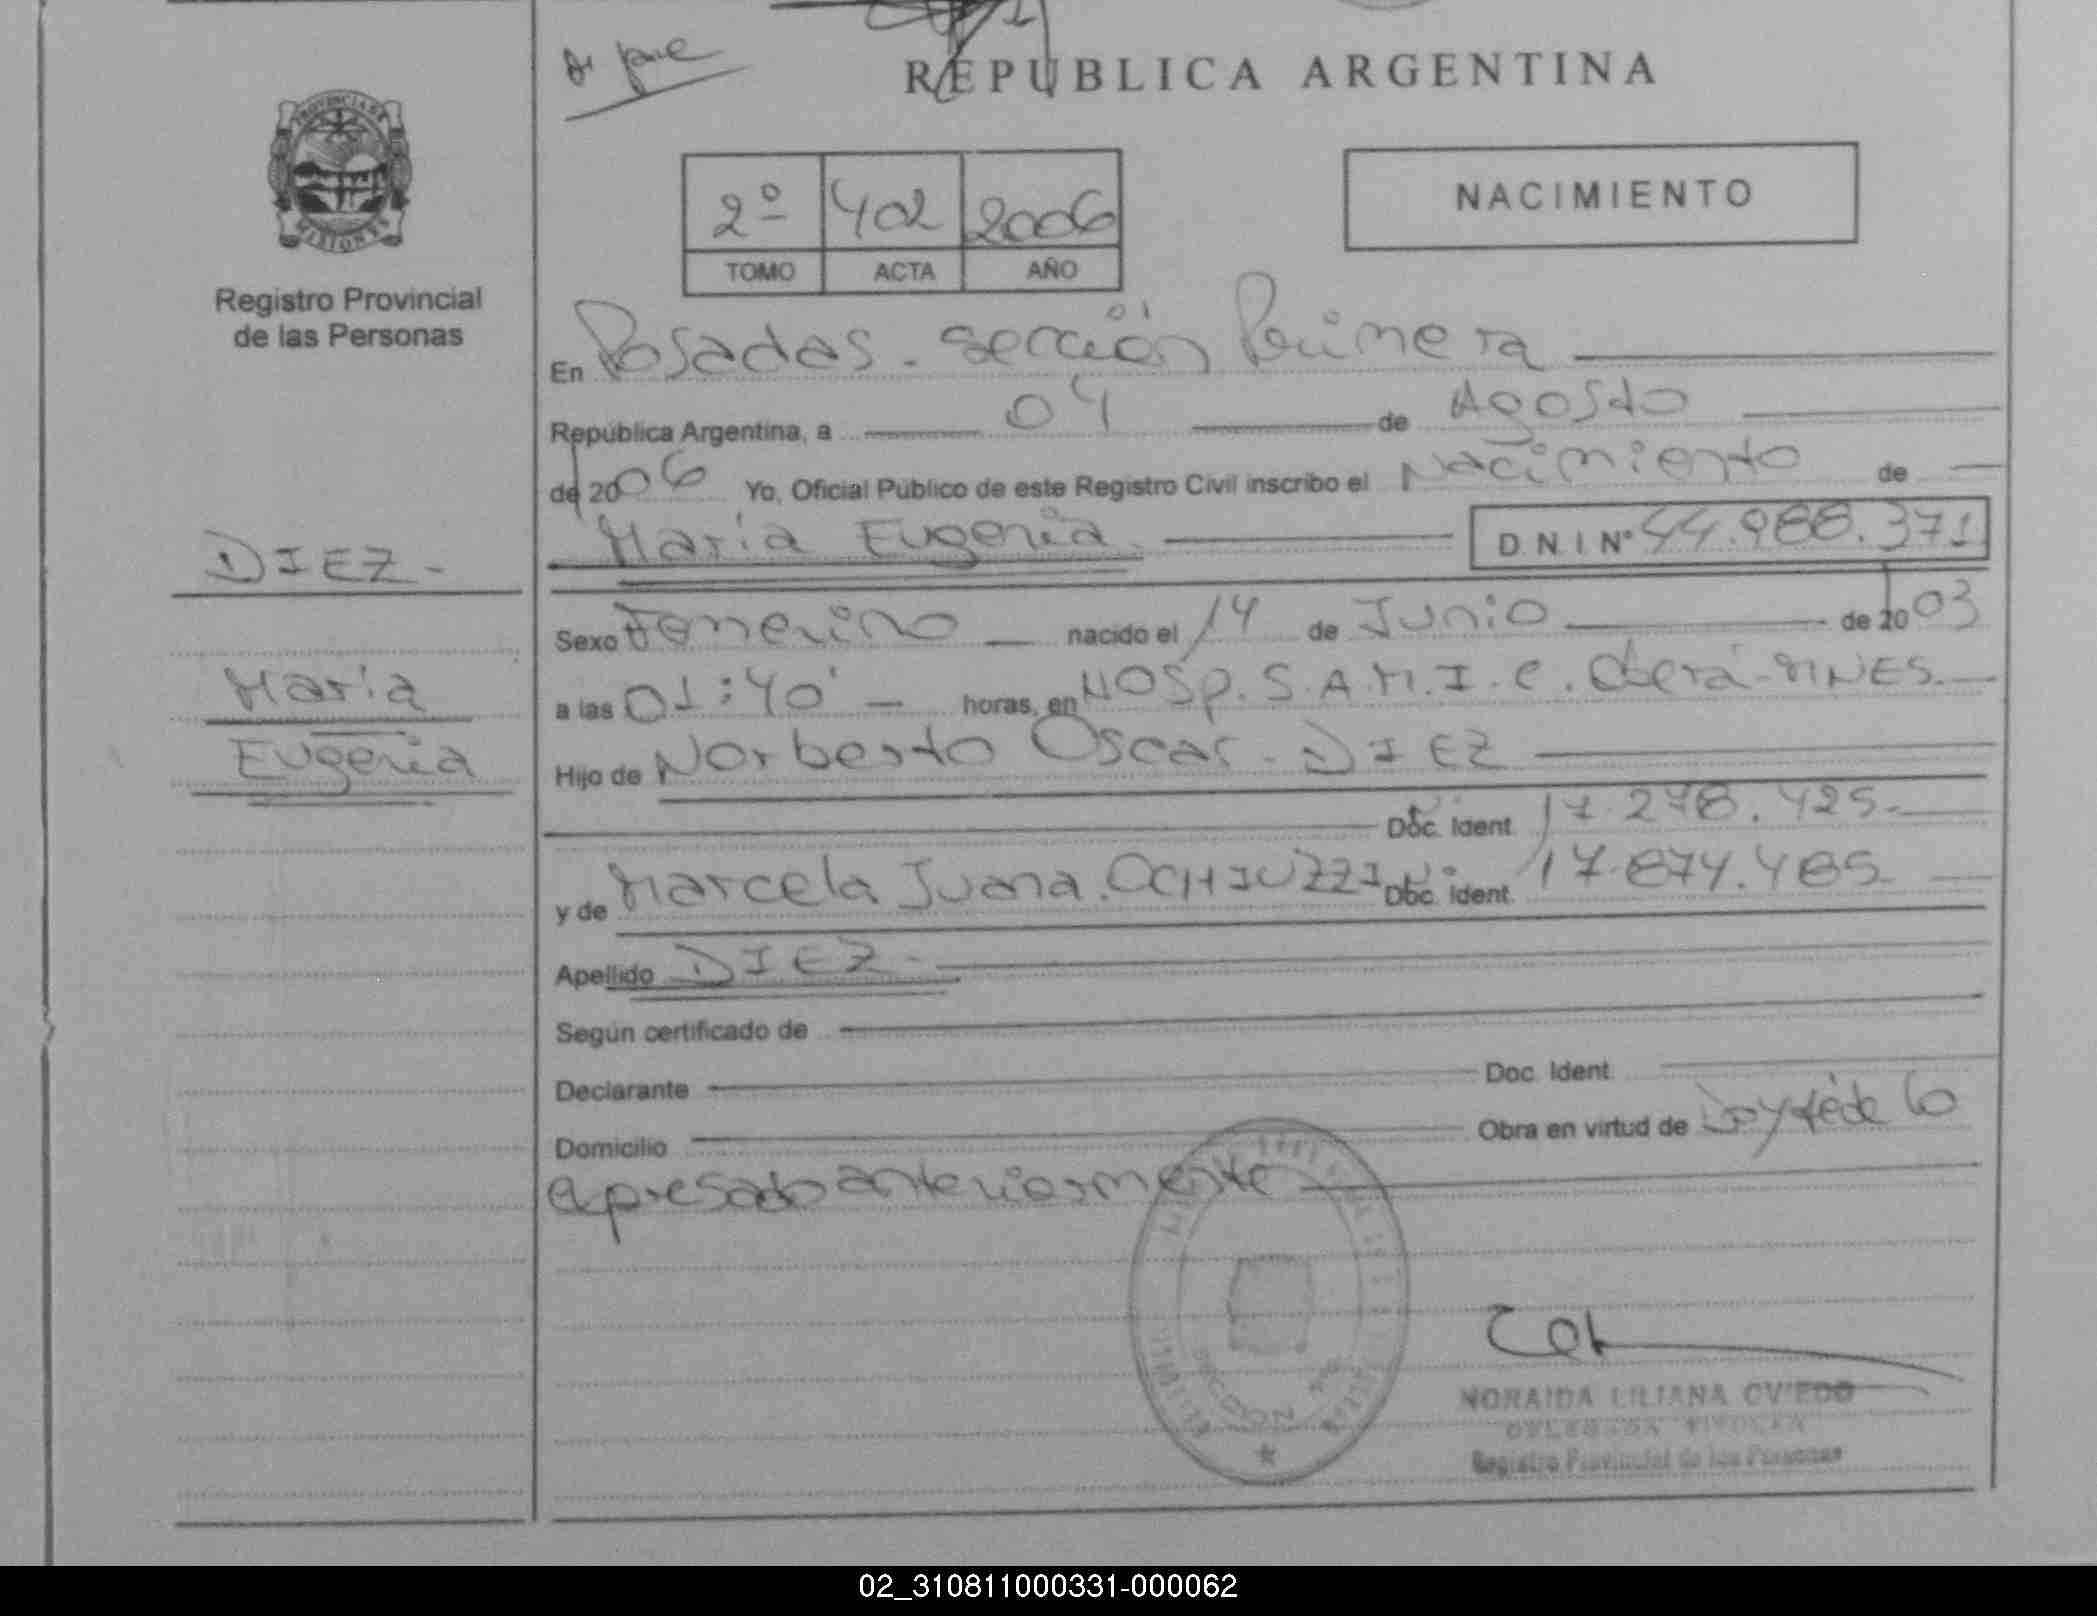 REPUBLICA ARGENTINA
PROVINCIA DE
MISIONES
Registro Provincial
de las Personas
2º 402 2006
TOMO ACTA AÑO
NACIMIENTO
En Posadas - Sección Primera
República Argentina, a 04 de Agosto
de 2006 Yo, Oficial Público de este Registro Civil inscribo el Nacimiento de
María Eugenia D.N.I Nº 44.988.371
DIEZ-
María
Eugenia
Sexo Femenino nacido el 14 de Junio de 2003
a las 01:40' horas, en HOSp. S.A.M.I.C. Oberá-MNES.
Hijo de Norberto Oscar - DIEZ
Doc. Ident. 17.278.425-
y de Marcela Juana. OCHIUZZI Doc. Ident. 17.874.485
Apellido DIEZ-
Según certificado de
Declarante Doc. Ident.
Domicilio Obra en virtud de Doy fé de lo
expresado anteriormente
SECCION
NORAIDA LILIANA OVIEDO
Registro Provincial de las Personas
02_310811000331-000062